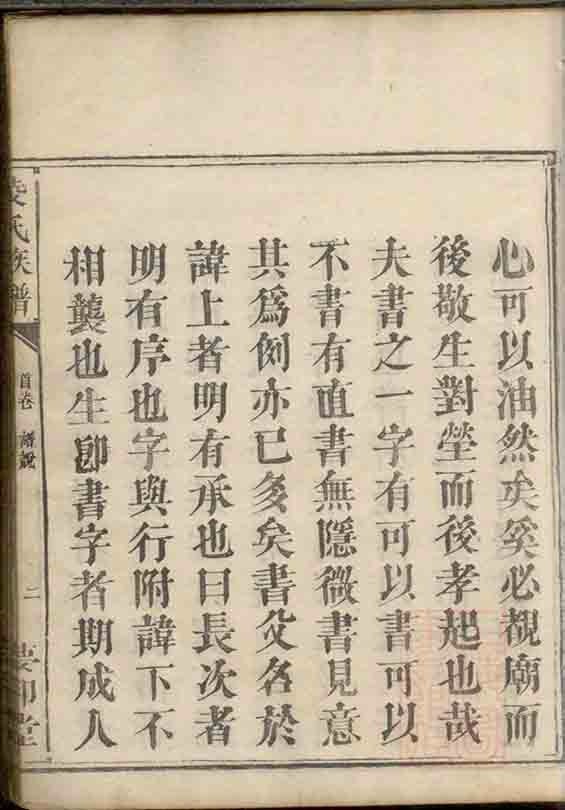 心可以油然矣奚必覩廟而
後敬生對塋而後孝起也哉
夫書之一字有可以書可以
不書有直書無隱微書見意
其爲例亦已多矣書父名於
諱上者明有承也曰長次者
明有序也字與行附諱下不
相襲也生卽書字者期成人
氏族譜
首卷 譜說
二
堂